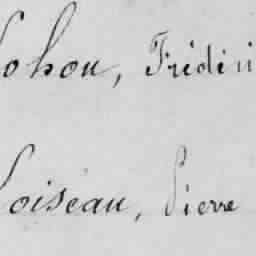 Lohou, Frédéri
Loiseau, Pierre